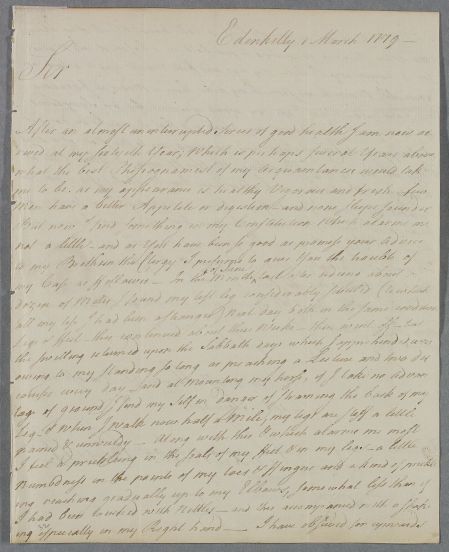 Edenkelly 1 March 1779 —
Sir
After an almost uninterrupted Series of good health I am now ar
ived at my Year, Which is perhaps several Years above
what the best Phisiognomist of my acquaintances would take
me to be. as my appearance is healthy Vigorous and fresh. few
Men have a better Appetite or digestion — and none Sleeps sounder
But now I find something in my Constitution Which alarms me
not a little — and as You have been so good as promise your advice
to my Brethren the Clergy I presume to give You the trouble of
my Case as follows — In the Month of June last after riding about a
dozen of Miles I found my left leg considerably swell'd
all my life I had been
legs & feet — this continued about three Weeks — then went off — But
the swelling returned upon the Sabbath days which I apprehend was
owing to my standing so long in preaching a Lecture and two dis
courses every day — and at mounting my horse, if I take no advan
tage of ground I find my self in danger of straining the back of my
leg. & when I walk now half a Mile, my legs are a little
pained & unwieldy — Along with this & which alarms me most
I feel a prickling in the soals of my feet & in my legs — a little
Numbedness in the points of my toes & fingers and a kind of prick
ing reaching gradually up to my Elbows, somewhat less than if
I had been touched with Nettles — and this accompanied with a shak
ing especially in my Right hand — I have observed for upwards